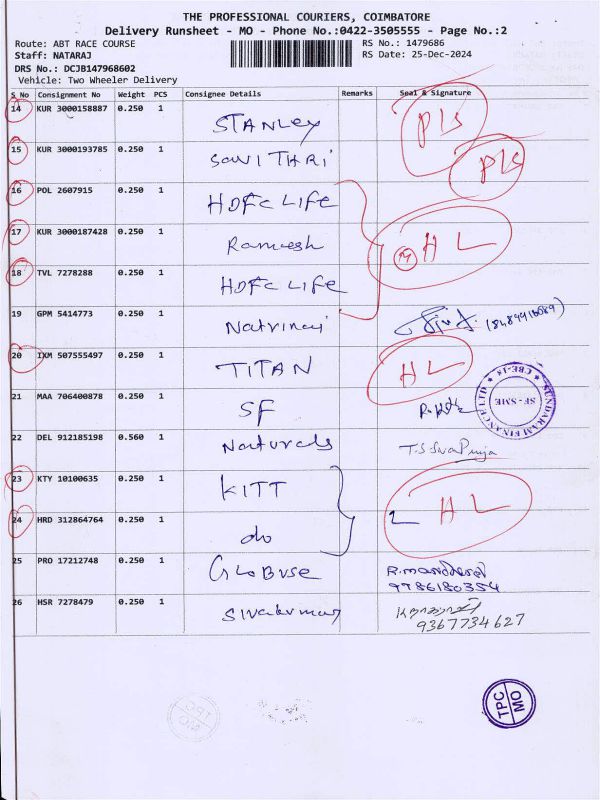 THE PROFESSIONAL COURIERS, COIMBATORE
Delivery Runsheet - MO - Phone No.:0422-3505555 - Page No.:2
Route: ABT RACE COURSE
RS No.: 1479686
Staff: NATARAJ
RS Date: 25-Dec-2024
DRS No.: DCJB147968602
Vehicle: Two Wheeler Delivery
S No Consignment No Weight PCS Consignee Details Remarks Seal & Signature
14 KUR 3000158887 0.250 1 STANLEY Pls
15 KUR 3000193785 0.250 1 SAVITHRI Pls
16 POL 2607915 0.250 1 HDFC LIFE
17 KUR 3000187428 0.250 1 Ramesh HL
18 TVL 7278288 0.250 1 HDFC LIFE
19 GPM 5414773 0.250 1
20 IXM 507555497 0.250 1 TITAN HL
21 MAA 706400878 0.250 1 SF
SUNDARAM FINANCE LIMITED
SF - SME
CBE-18
22 DEL 912185198 0.560 1 Naturals
23 KTY 10100635 0.250 1 KITT
24 HRD 312864764 0.250 1 do HL
25 PRO 17212748 0.250 1 GLOBUSE
9786180354
26 HSR 7278479 0.250 1 Sivakumar
9367734627
TPC
MO